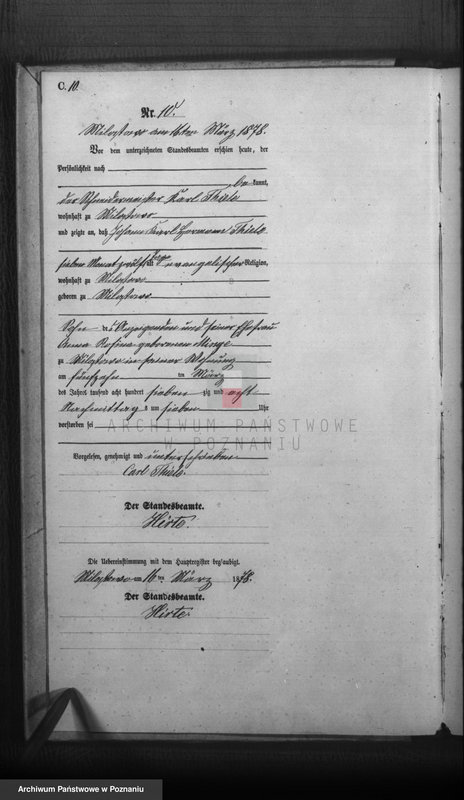 C. 10.
Nr. 10.
Milostowo am 16ten März 1878.
Vor dem unterzeichneten Standesbeamten erschien heute, der
Persönlichkeit nach
be kannt,
der Schneidermeister Karl Thiele
wohnhaft zu Milostowo
und zeigte an, daß Johann Karl Hermann Thiele
sieben Monat zwölf Tage evangelischer Religion,
wohnhaft zu Milostowo
geboren zu Milostowo
Sohn des Anzeigenden und seiner Ehefrau
Anna Rosina geborenen
zu Milostowo in seiner Wohnung
am fünfzehn ten März
des Jahres tausend acht hundert sieben zig und acht
Nachmittag s um sieben Uhr
verstorben sei
Vorgelesen, genehmigt und unterschrieben
Carl Thiele.
Der Standesbeamte.
Hirte.
Die Uebereinstimmung mit dem Hauptregister beglaubigt.
Milostowo am 16 ten März 1878.
Der Standesbeamte.
Hirte.
ARCHIWUM PAŃSTWOWE
W POZNANIU
Archiwum Państwowe w Poznaniu